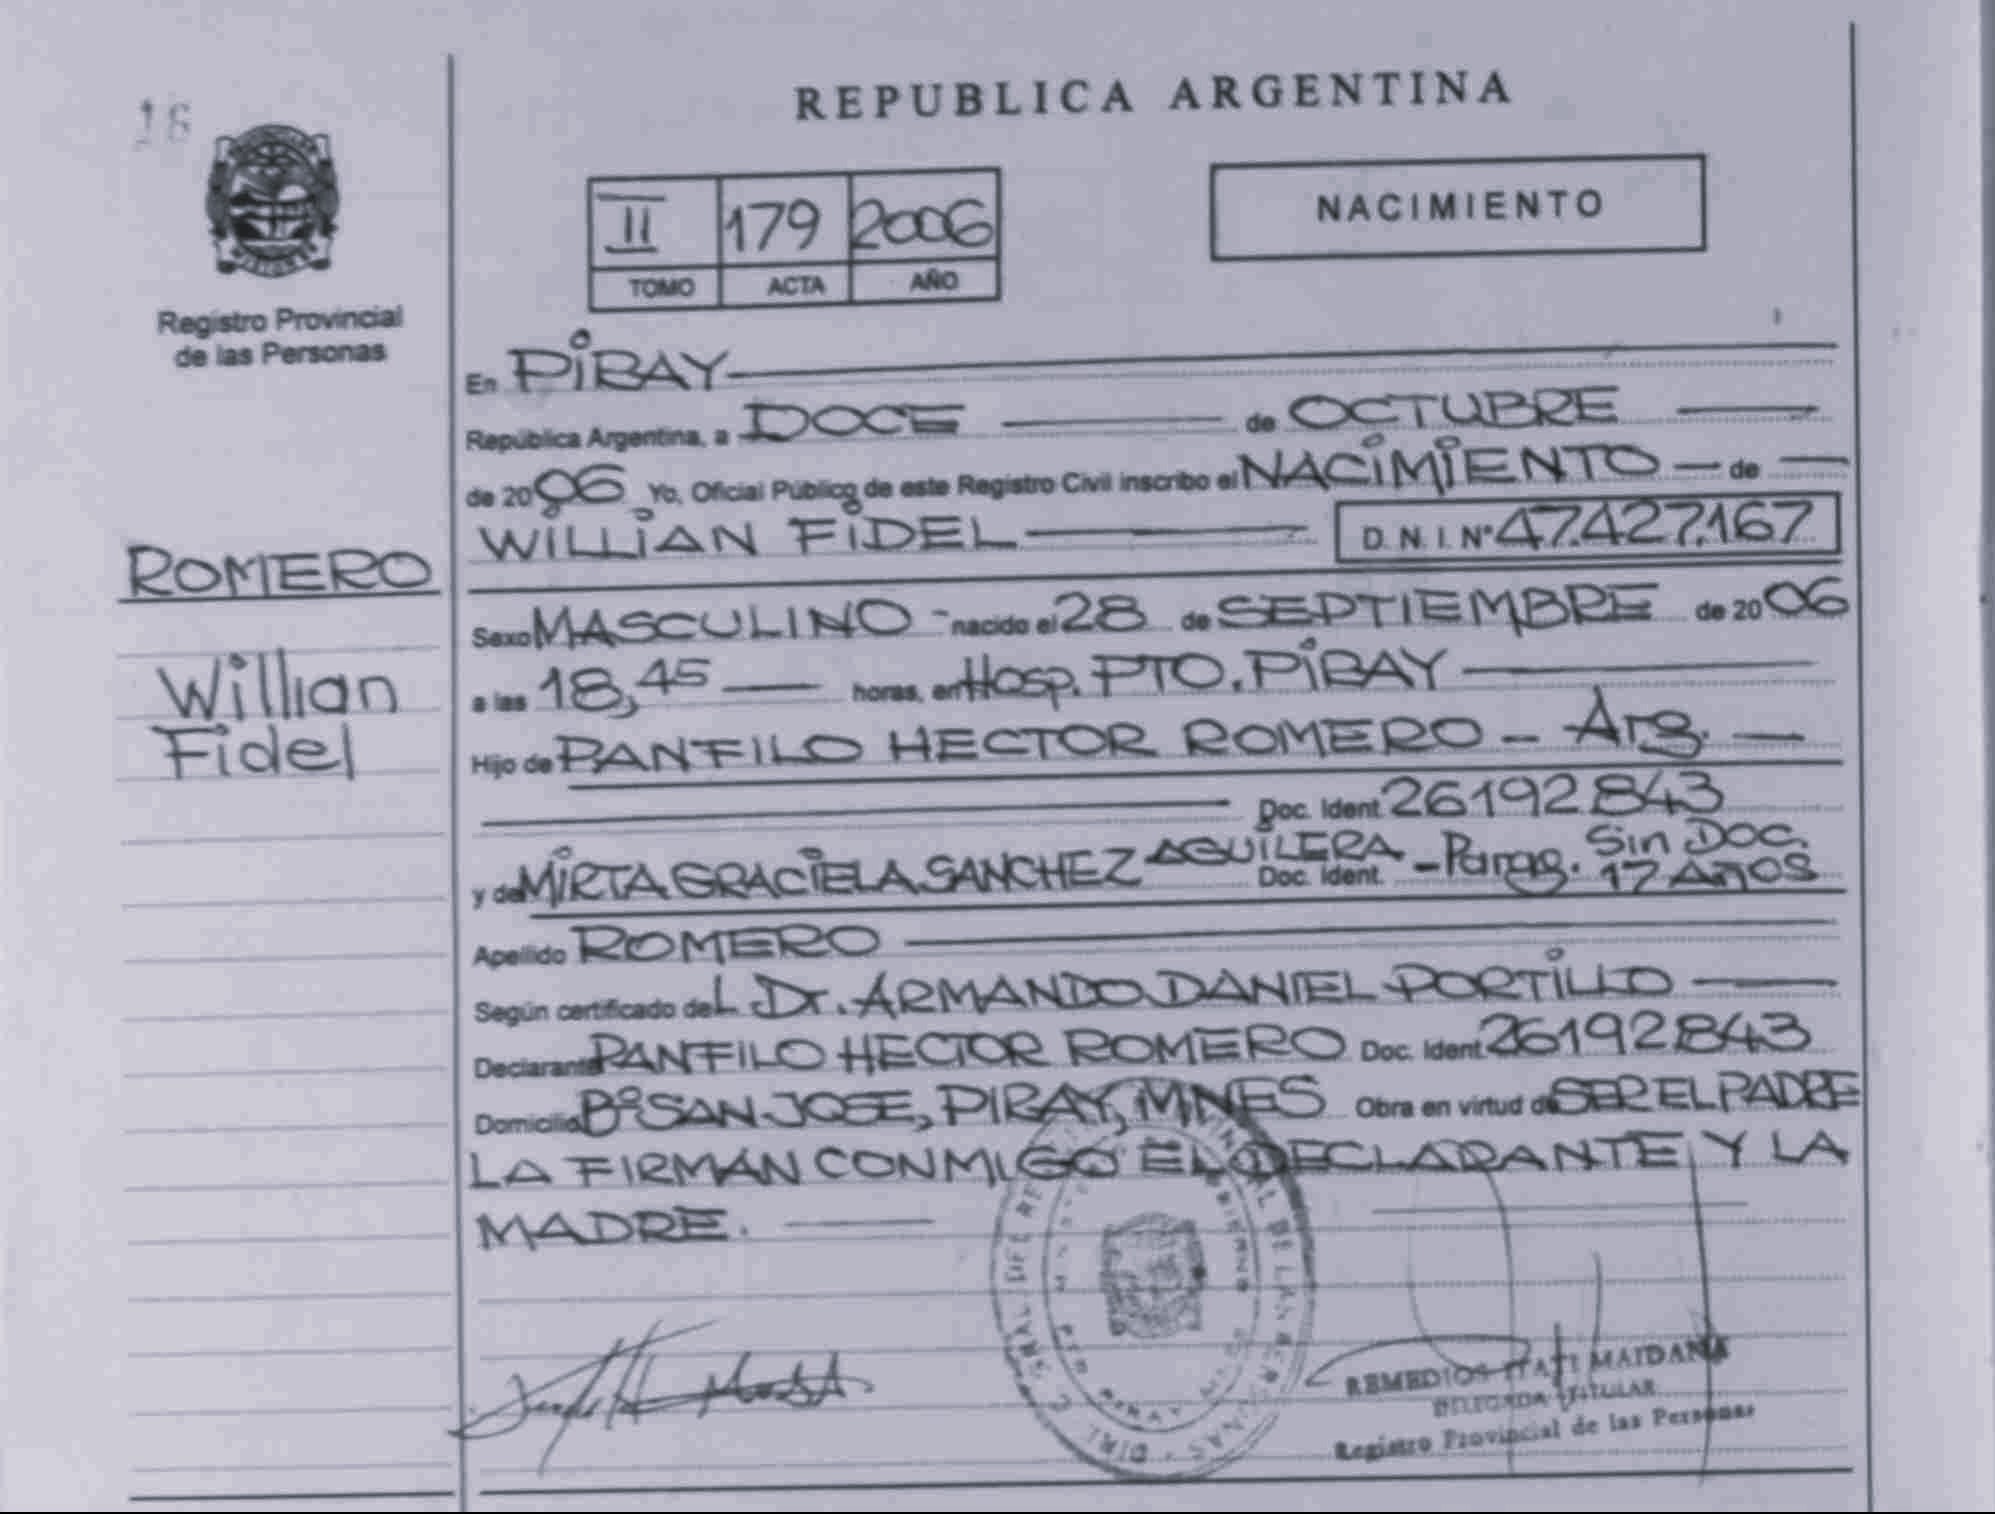 18
REPUBLICA ARGENTINA
II 179 2006
TOMO ACTA AÑO
NACIMIENTO
Registro Provincial
de las Personas
ROMERO
Willian
Fidel
En PIRAY
República Argentina, a DOCE de OCTUBRE
de 2006 Yo, Oficial Público de este Registro Civil inscribo el NACIMIENTO de
WILLIAN FIDEL D.N.I. Nº 47.427.167
Sexo MASCULINO - nacido el 28 de SEPTIEMBRE de 2006
a las 18,45 horas, en Hosp. PTO. PIRAY
Hijo de PANFILO HECTOR ROMERO - Arg.
Doc. Ident. 26192843
y de MIRTA GRACIELA SANCHEZ AGUILERA Doc. Ident. - Parag. Sin Doc. 17 Años
Apellido ROMERO
Según certificado del Dr. ARMANDO DANIEL PORTILLO
Declarante PANFILO HECTOR ROMERO Doc. Ident. 26192843
Domicilio Bº SAN JOSE, PIRAY, MNES Obra en virtud de SER EL PADRE
LA FIRMAN CONMIGO EL DECLARANTE Y LA
MADRE.
REMEDIOS ITATI MAIDANA
DELEGADA TITULAR
Registro Provincial de las Personas